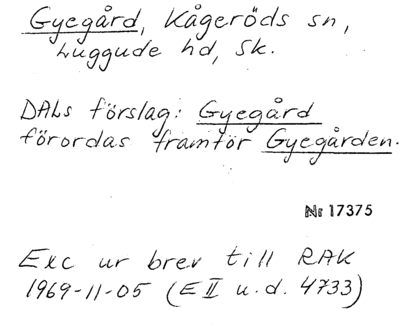 Gyegård, Kågeröds sn,
Luggude hd, Sk.
DALs förslag: Gyegård
förordas framför Gyegården.
Nr 17375
Exc ur brev till RAK
1969-11-05 (E II u.d. 4733)